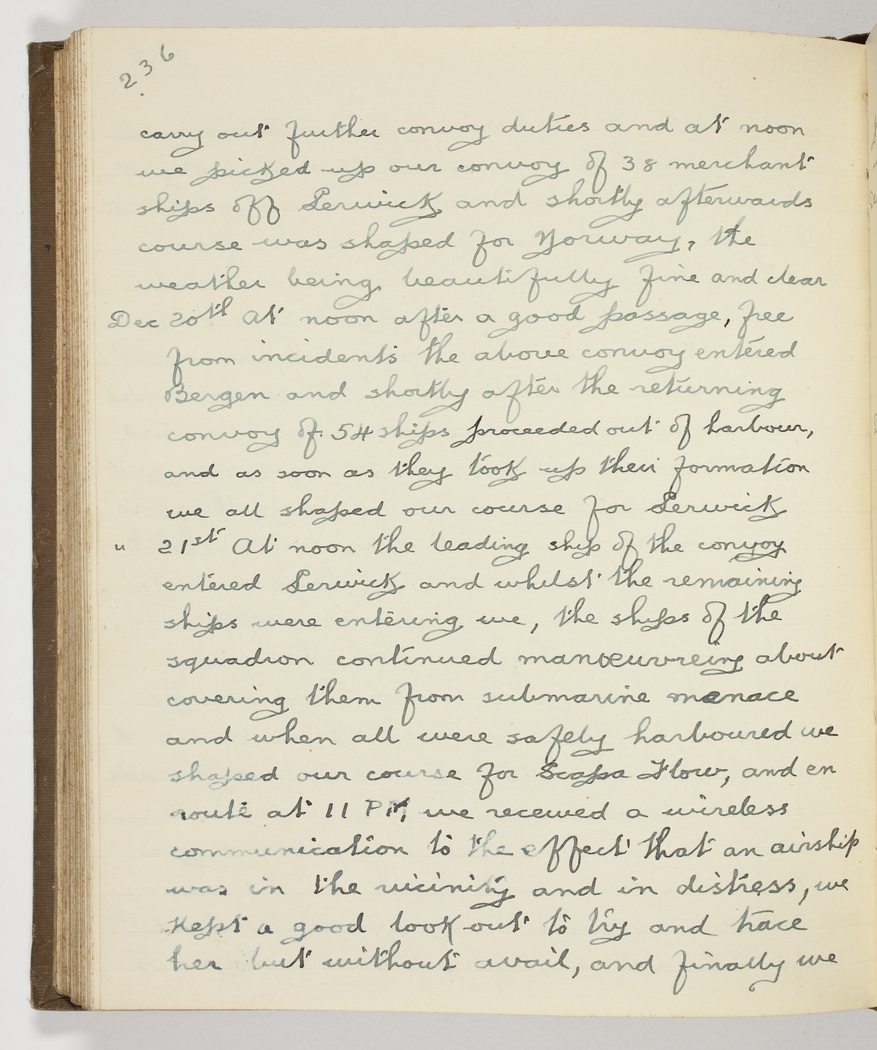 236
carry out further convoy duties and at noon
we picked up our convoy of 38 merchant
ships off Lerwick and shortly afterwards
course was shaped for Norway, the
weather being beautifully fine and clear
Dec 20th At noon after a good passage, free
from incidents the above convoy entered
Bergen and shortly after the returning
convoy of 54 ships proceeded out of harbour,
and as soon as they took up their formation
we all shaped our course for Lerwick
" 21st At noon the leading ship of the convoy
entered Lerwick and whilst the remaining
ships were entering we, the ships of the
squadron continued manœuvreing about
covering them from submarine menace
and when all were safely harboured we
shaped our course for Scapa Flow, and en
route at 11 PM, we received a wireless
communication to the effect that an airship
was in the vicinity and in distress, we
kept a good look-out to try and trace
her but without avail, and finally we